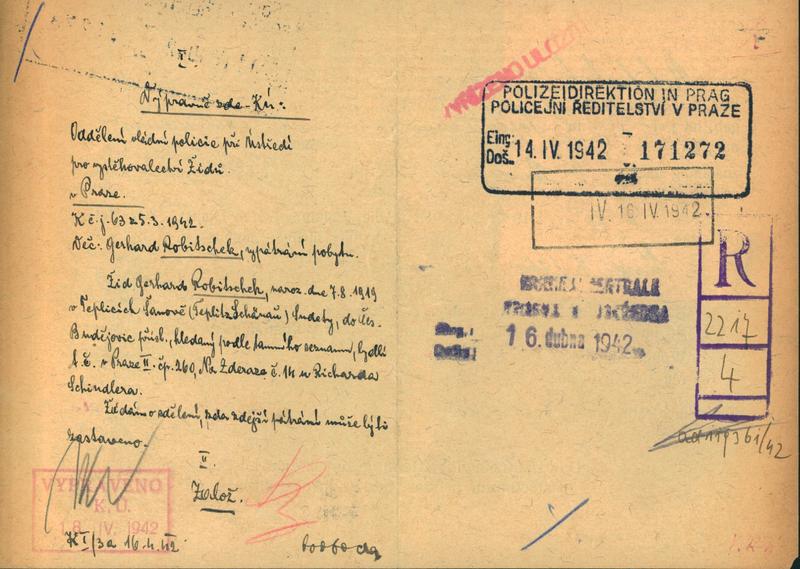 I.
Výpravně zde-Kú:
Oddělení vládní policie při Ústředí
pro vystěhovalectví Židů
v Praze.
K č.j. 63 z 5.3. 1942.
Věc. Gerhard Robitschek, vypátrání pobytu.
Žid Gerhard Robitschek, naroz. dne 7.8.1919
v Teplicích Šanově (Teplitz Schönau) Sudety, do Čes.
Budějovic přísl., hledaný podle tamního seznamu, bydlí
t. č. v Praze II. čp. 260, Na Zderaze č. 14 u Richarda
Schindlera.
Žádám o sdělení, zda zdejší pátrání může býti
zastaveno.
II.
Založ.
VYPRAVENO
K. Ú.
18. IV. 1942
K I/3a 16.4.42
POLIZEIDIREKTION IN PRAG
POLICEJNÍ ŘEDITELSTVÍ V PRAZE
Eing.
Doš. 14. IV. 1942 171272
IV. 16 IV. 1942
16. dubna 1942
R
2217
4
ad 119361/42